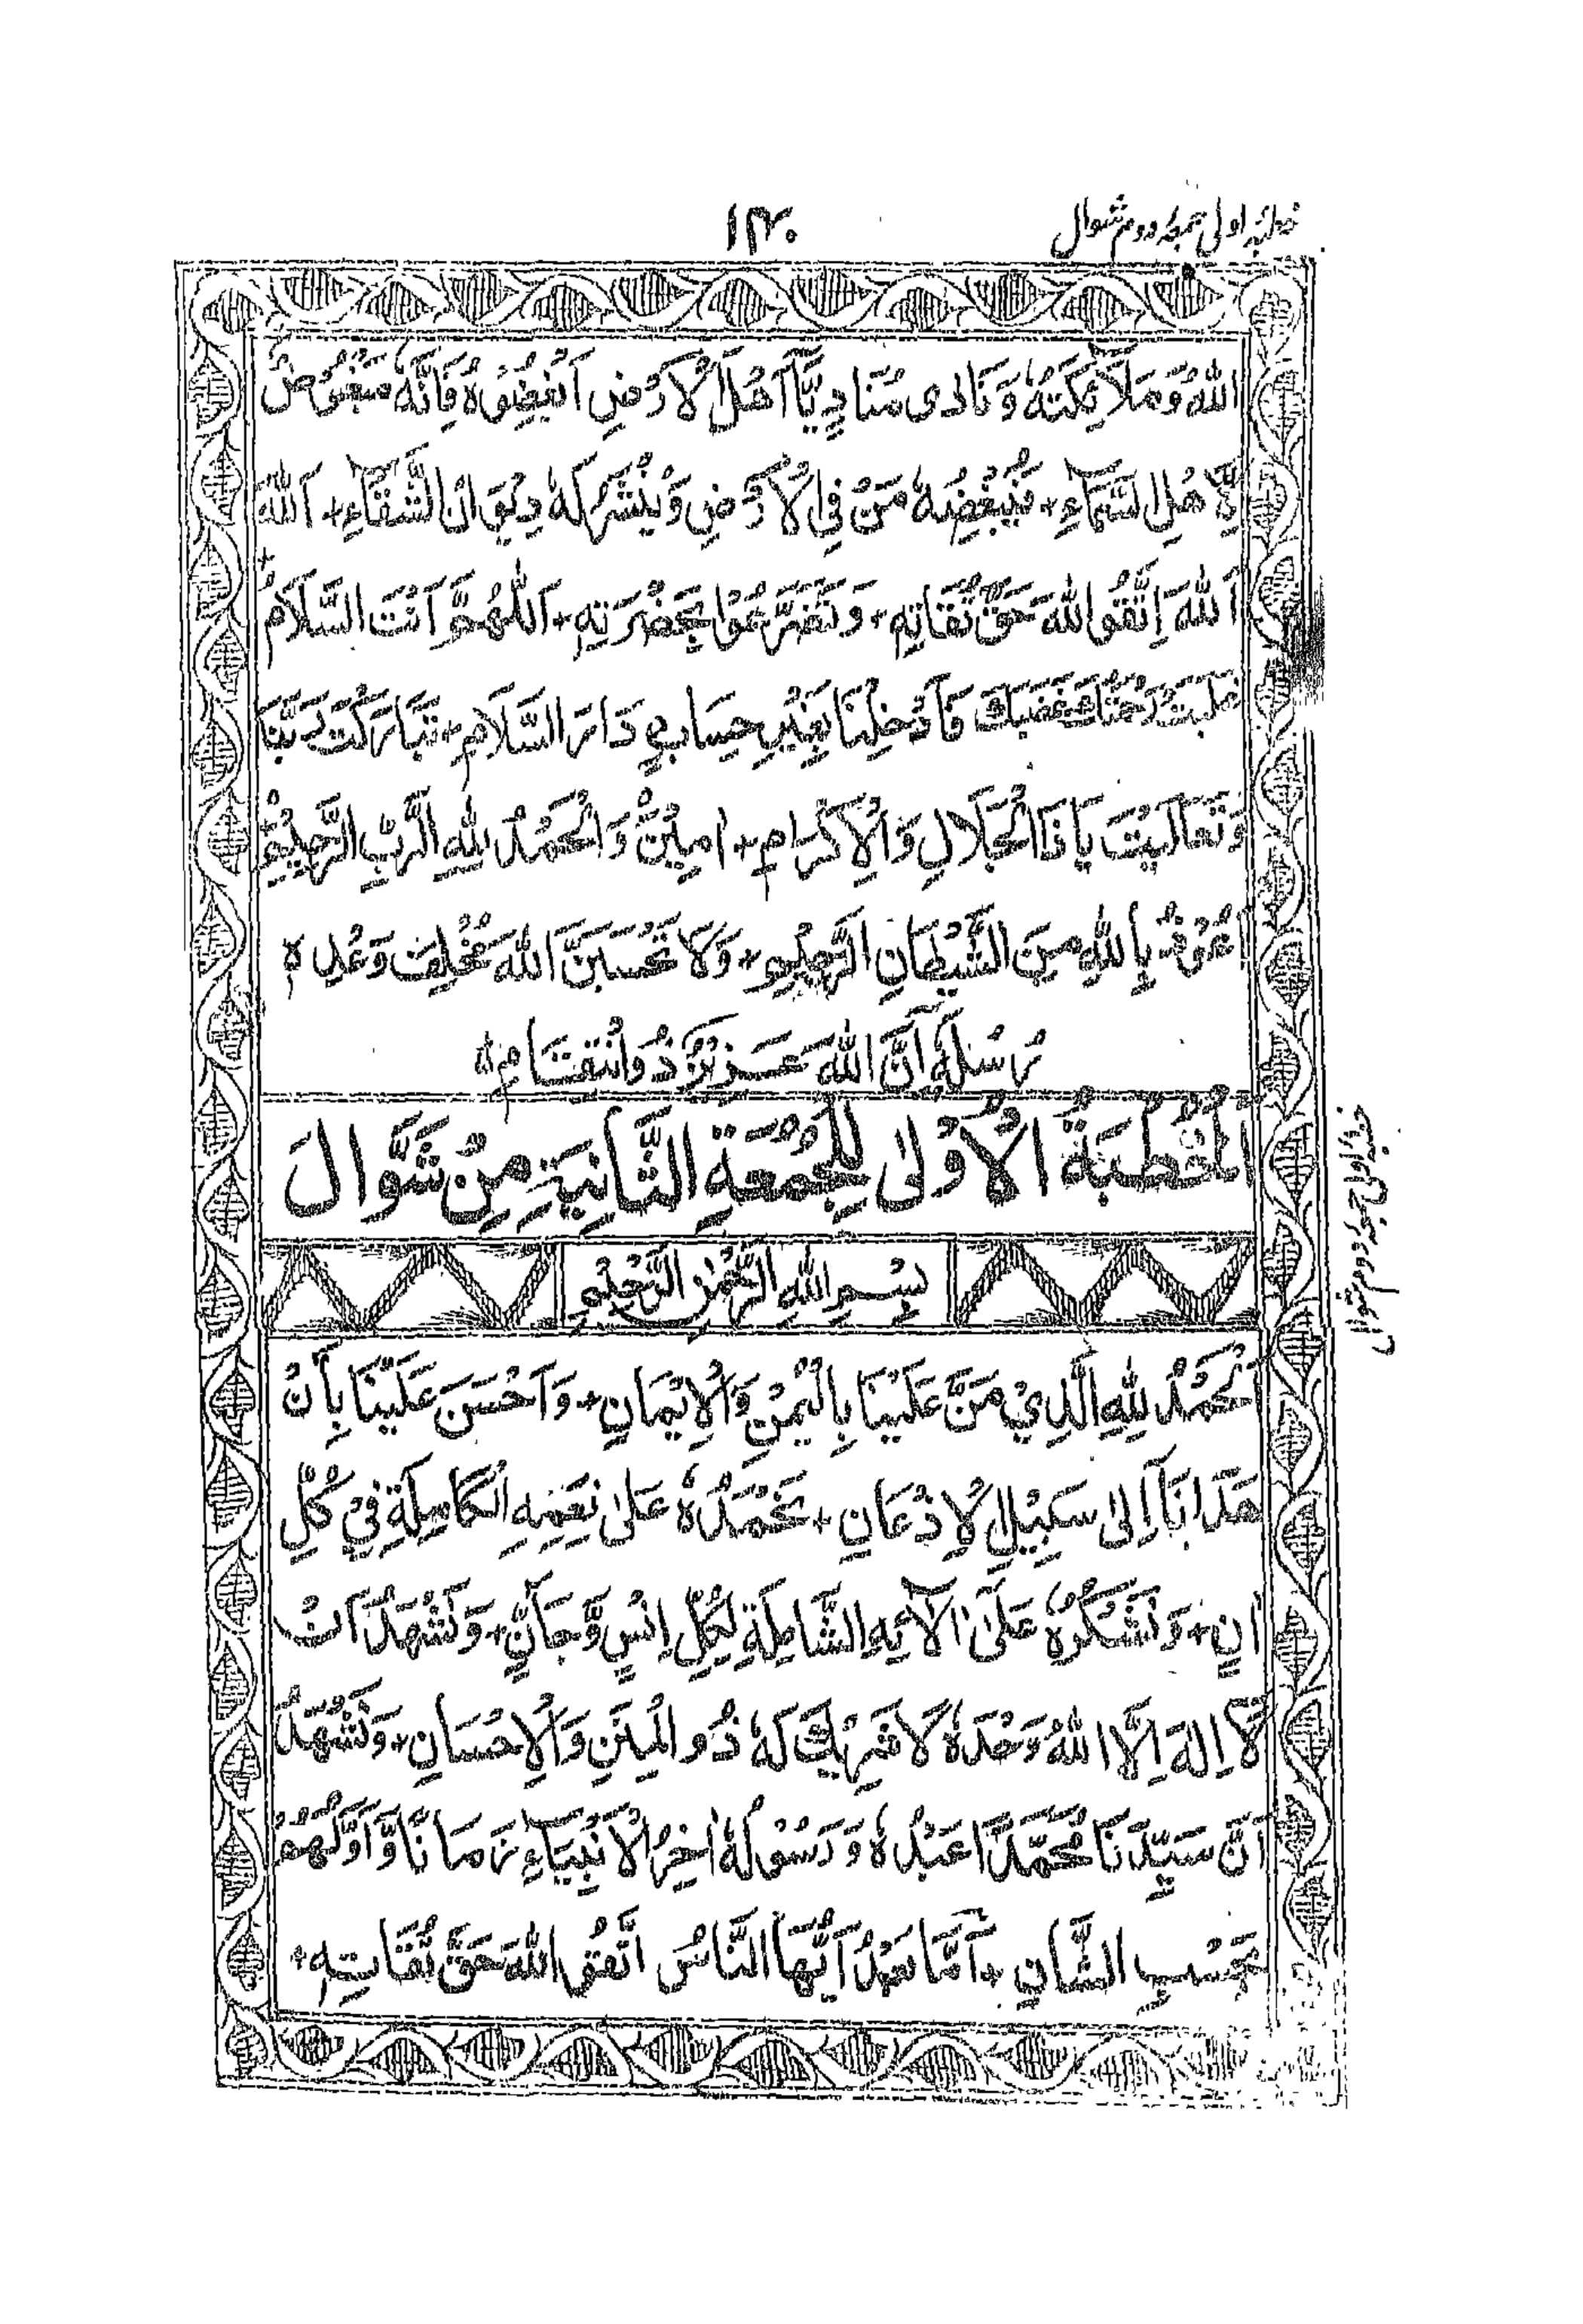 خطبۂ اولی جمعۂ دوم شوال
۱۳۰
اللهُ وَمَلَآئِكَتُهٗ وَنَادٰى مُنَادٍ يَّآ اَهْلَ الْاَرْضِ اَبْغِضُوْهُ فَاِنَّهٗ مَبْغُوْضٌ
لِّاَهْلِ السَّمَآءِ + فَيُبْغِضُهٗ مَنْ فِي الْاَرْضِ وَيُنْشَرُ لَهٗ دِيْوَانُ الشَّقَآءِ + اَللهَ
اَللهَ اِتَّقُوا اللهَ حَقَّ تُقَاتِهٖ + وَتَضَرَّعُوْا بِحَضْرَتِهٖ + اَللّٰهُمَّ اَنْتَ السَّلَامُ +
غَلَبَتْ رَحْمَتُكَ غَضَبَكَ فَاَدْخِلْنَا بِغَيْرِ حِسَابٍ دَارَ السَّلَامِ + تَبَارَكْتَ رَبَّنَا
وَتَعَالَيْتَ يَا ذَا الْجَلَالِ وَالْاِكْرَامِ + اٰمِيْنَ وَالْحَمْدُ لِلّٰهِ الرَّبِّ الرَّحِيْمِ +
اَعُوْذُ بِاللهِ مِنَ الشَّيْطَانِ الرَّجِيْمِ + وَلَا تَحْسَبَنَّ اللهَ مُخْلِفَ وَعْدِهٖ
رُسُلَهٗ اِنَّ اللهَ عَزِيْزٌ ذُو انْتِقَامٍ
اَلْخُطْبَةُ الْاُوْلٰى لِلْجُمُعَةِ الثَّانِيَةِ مِنْ شَوَّالَ
خطبۂ اولی جمعۂ دوم شوال
بِسْمِ اللهِ الرَّحْمٰنِ الرَّحِيْمِ
اَلْحَمْدُ لِلّٰهِ الَّذِيْ مَنَّ عَلَيْنَا بِالْيُمْنِ وَالْاِيْمَانِ + وَاَحْسَنَ عَلَيْنَا بِاَنْ
هَدَانَآ اِلٰى سَبِيْلِ الْاِذْعَانِ + نَحْمَدُهٗ عَلٰى نِعَمِهِ الْكَامِلَةِ فِيْ كُلِّ
اٰنٍ + وَنَشْكُرُهٗ عَلٰٓى اٰلَآئِهِ الشَّامِلَةِ لِكُلِّ اِنْسٍ وَّجَآنٍّ + وَنَشْهَدُ اَنْ
لَّآ اِلٰهَ اِلَّا اللهُ وَحْدَهٗ لَا شَرِيْكَ لَهٗ ذُو الْمِنَنِ وَالْاِحْسَانِ + وَنَشْهَدُ
اَنَّ سَيِّدَنَا مُحَمَّدًا عَبْدُهٗ وَرَسُوْلُهٗ اٰخِرُ الْاَنْبِيَآءِ زَمَانًا وَّاَوَّلُهُمْ
بِحَسْبِ الشَّانِ + اَمَّا بَعْدُ اَيُّهَا النَّاسُ اتَّقُوا اللهَ حَقَّ تُقَاتِهٖ +